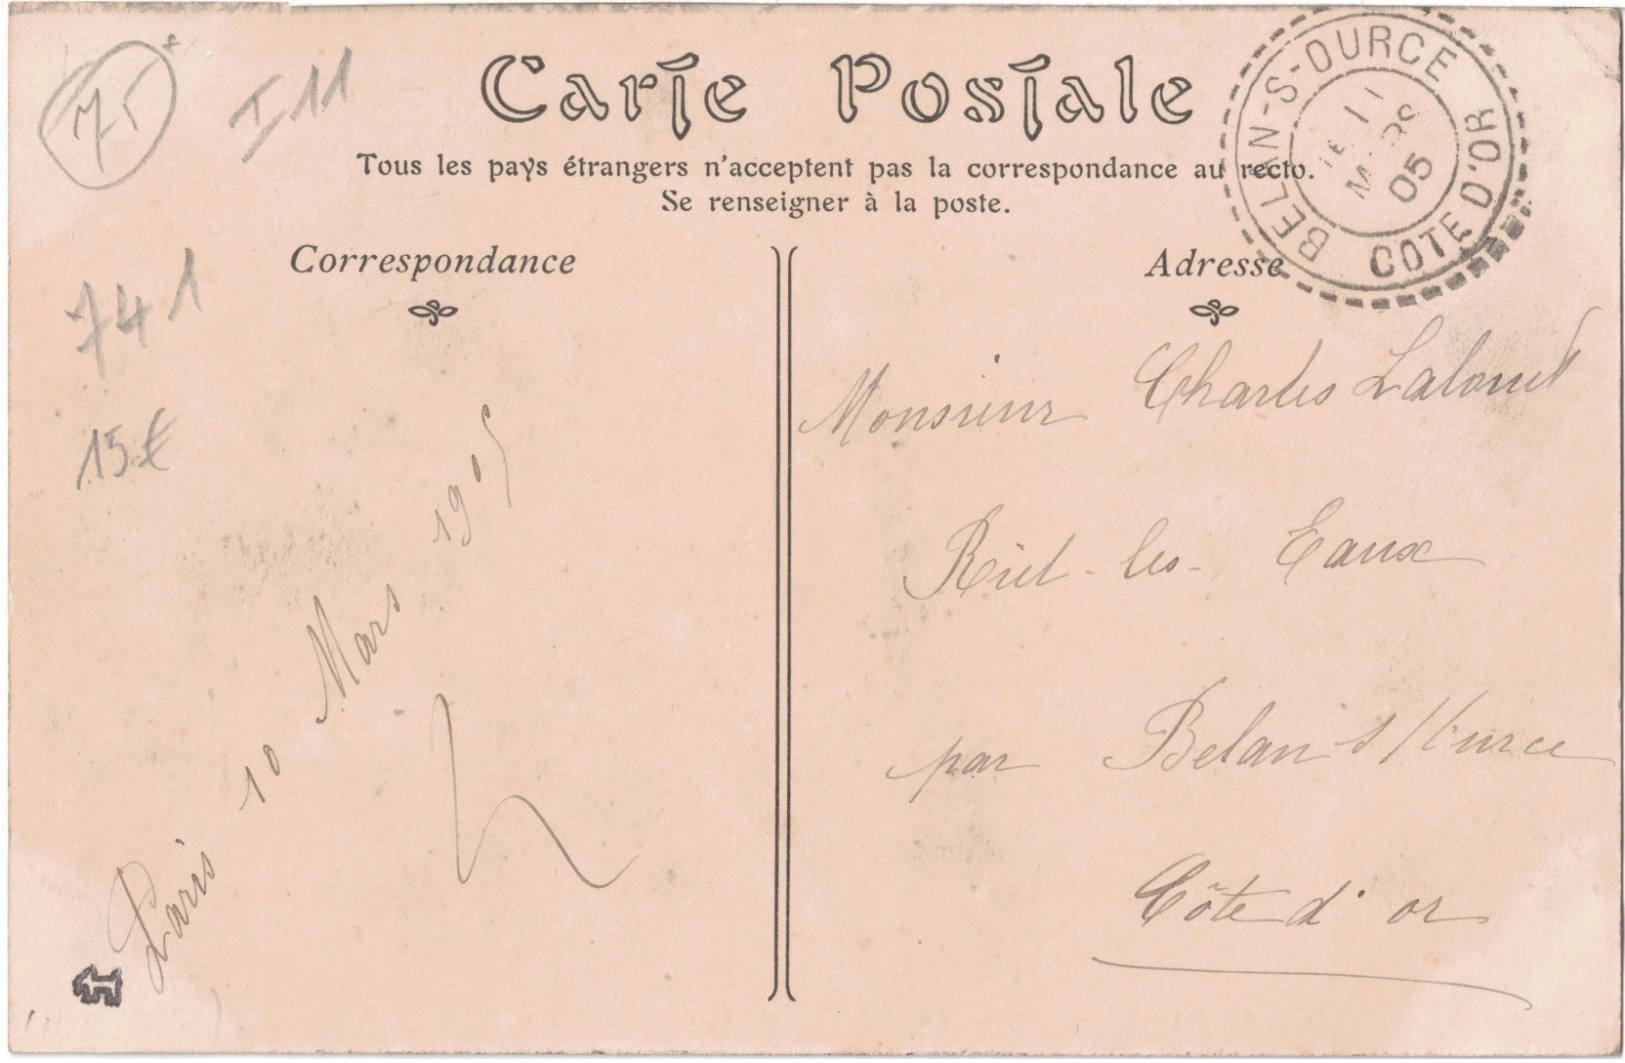 75
I 11
Carte Postale
Tous les pays étrangers n'acceptent pas la correspondance au recto.
Se renseigner à la poste.
BELAN-S-OURCE
COTE D'OR
11
MARS
05
Correspondance
Adresse
741
15€
Paris 10 Mars 1905
Monsieur Charles
Riel-les-Eaux
par Belan s/Ource
Côte d'or